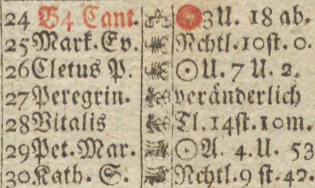 24 B4 Cant. 3U. 18 ab.
25 Mark. Ev. Nchtl. 10st. 0.
26 Cletus P. ☉U. 7 U. 2.
27 Peregrin. veränderlich
28 Vitalis Tl. 14st. 10m.
29 Pet. Mar. ☉A. 4. U. 53
30 Kath. S. Nchtl. 9 st. 42.